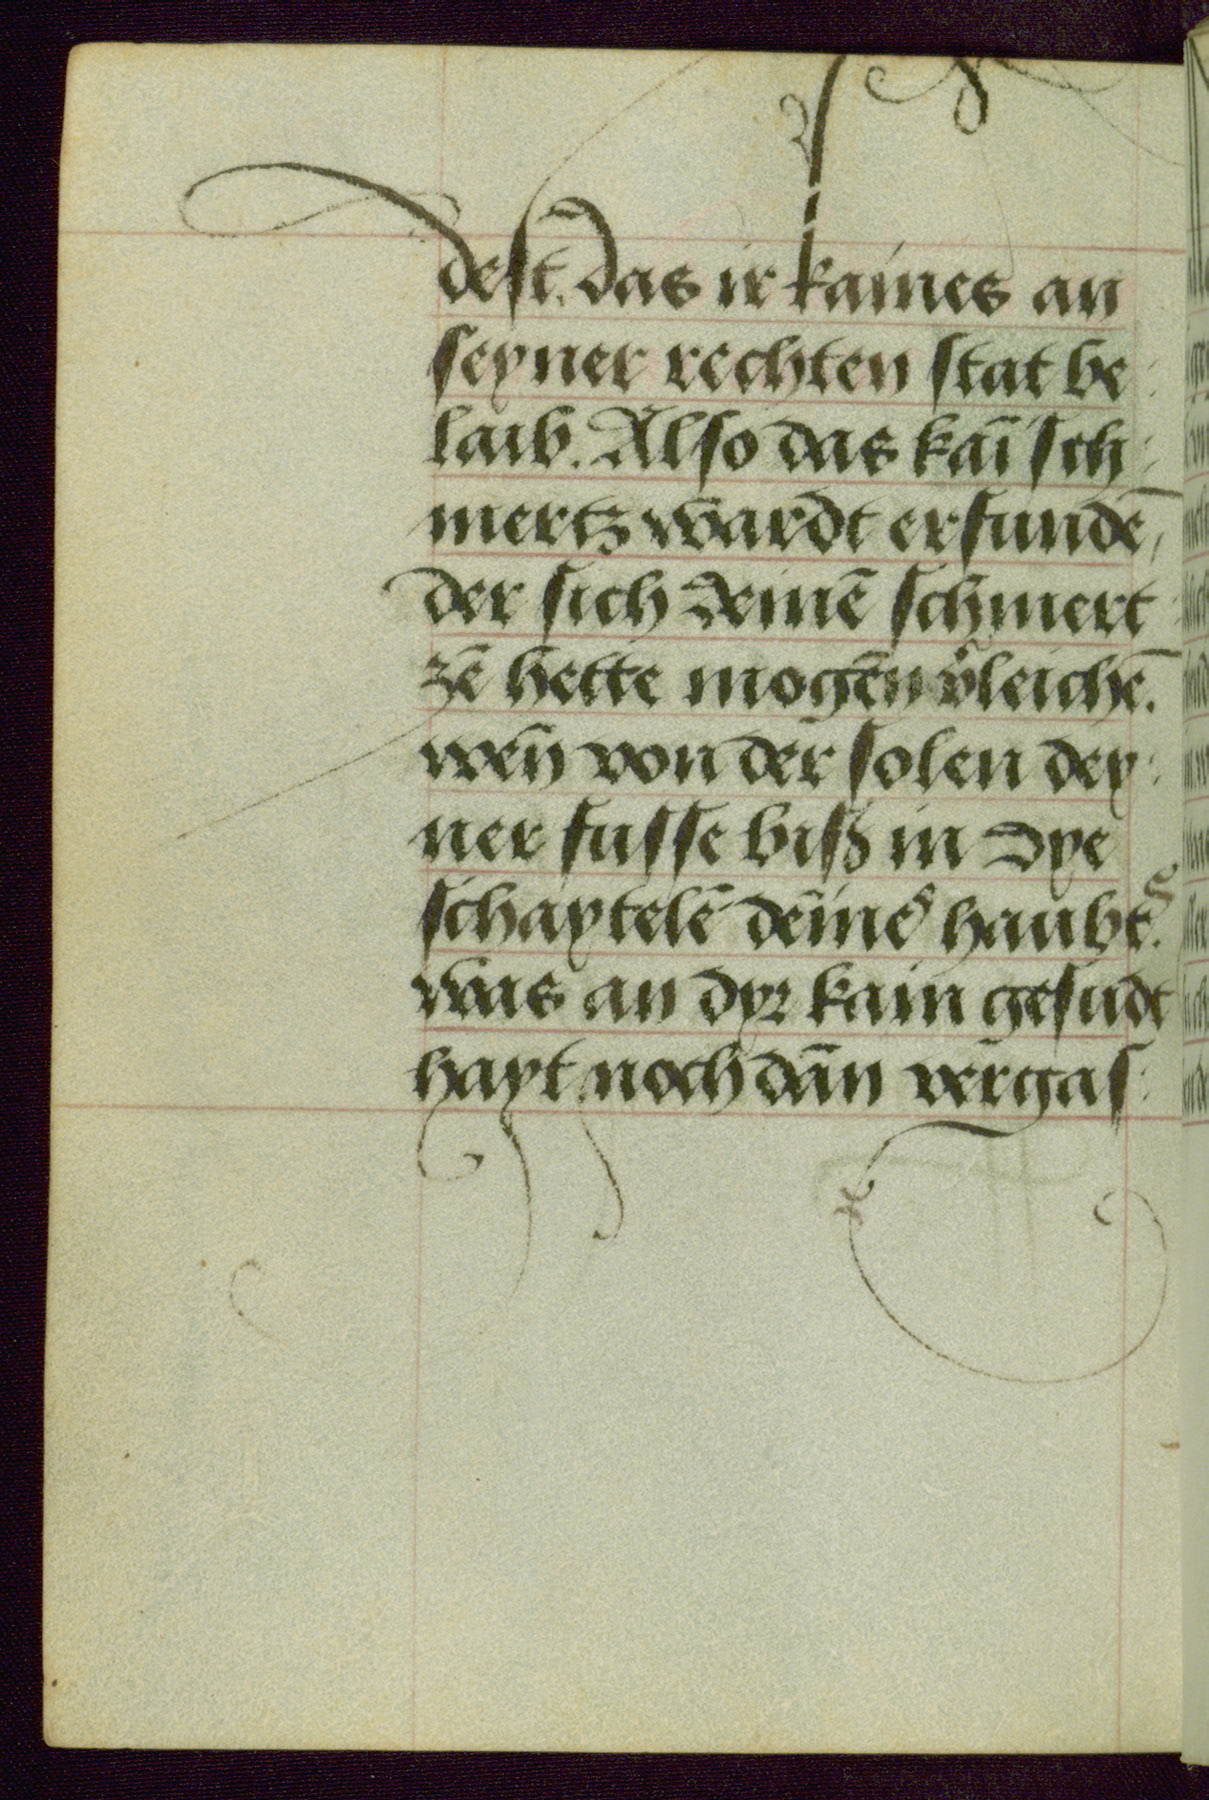 dest. das ir kaines an
seyner rechten stat be
laib. Also das kaī sch
mertz wardt erfundē,
der sich deinē schmert
zē hette mogen v̄leichē.
wen̄ von der solen dey
ner fusse biß in dye
schaytelē deines haubts.
was an dyr kain gesudt
hayt noch dan̄ vergas